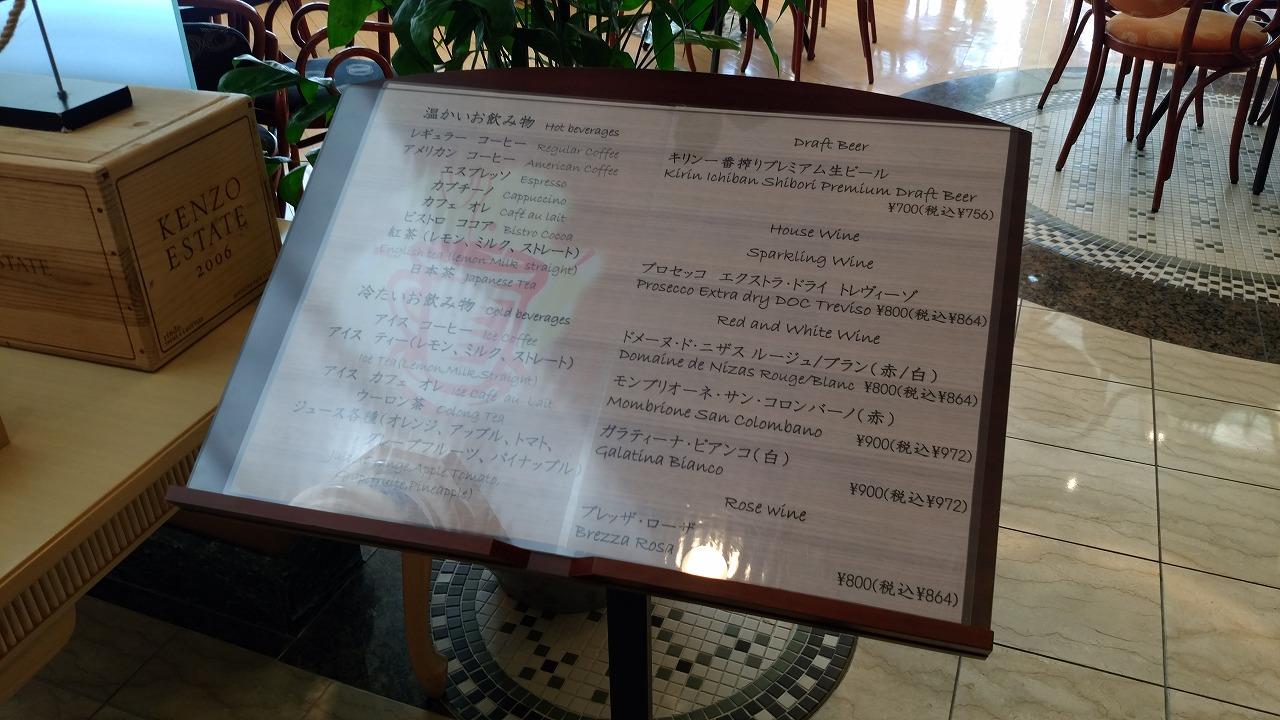 KENZO
ESTATE
2006
ESTATE
温かいお飲み物 Hot beverages
レギュラー コーヒー Regular Coffee
アメリカン コーヒー American Coffee
エスプレッソ Espresso
カプチーノ Cappuccino
カフェ オレ Café au lait
ビストロ ココア Bistro Cocoa
紅茶(レモン、ミルク、ストレート)
English tea (Lemon Milk straight)
日本茶 Japanese Tea
冷たいお飲み物 Cold beverages
アイス コーヒー Ice Coffee
アイス ティー(レモン、ミルク、ストレート)
Ice Tea(Lemon,Milk,Straight)
アイス カフェ オレ Ice Café au Lait
ウーロン茶 Oolong Tea
ジュース各種(オレンジ、アップル、トマト、
グレープフルーツ、パイナップル)
Apple,Tomato,
Pineapple)
Draft Beer
キリン一番搾りプレミアム生ビール
Kirin Ichiban Shibori Premium Draft Beer
¥700(税込¥756)
House Wine
Sparkling Wine
プロセッコ エクストラ・ドライ トレヴィーゾ
Prosecco Extra dry DOC Treviso ¥800(税込¥864)
Red and White Wine
ドメーヌ・ド・ニザス ルージュ/ブラン(赤/白)
Domaine de Nizas Rouge/Blanc ¥800(税込¥864)
モンブリオーネ・サン・コロンバーノ(赤)
Mombrione San Colombano ¥900(税込¥972)
ガラティーナ・ビアンコ(白)
Galatina Bianco
¥900(税込¥972)
Rose Wine
ブレッザ・ローザ
Brezza Rosa
¥800(税込¥864)